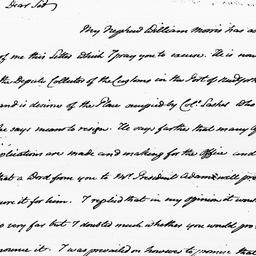 Dear Sir
My Nephew William Morris has as
of me this Letter which I pray you to excuse. He is now
the Deputy Collector of the Customs in the Port of New York
and is desirous of the Place occupied by Col. who
he says means to resign. He says farther that many a
plications are made and making for the Office and
that a Word from you to Mr. President Adams will pro
cure it for him. I replied that in my opinion it wou
go very far but I doubted much whether you would pro
nounce it. I was prevailed on however to promise that